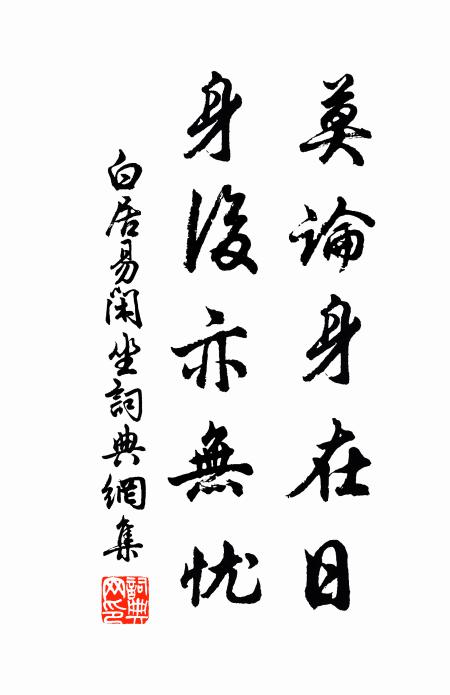 莫論身在日
身後亦無忧
白居易閑坐詞典網集
詞典网印